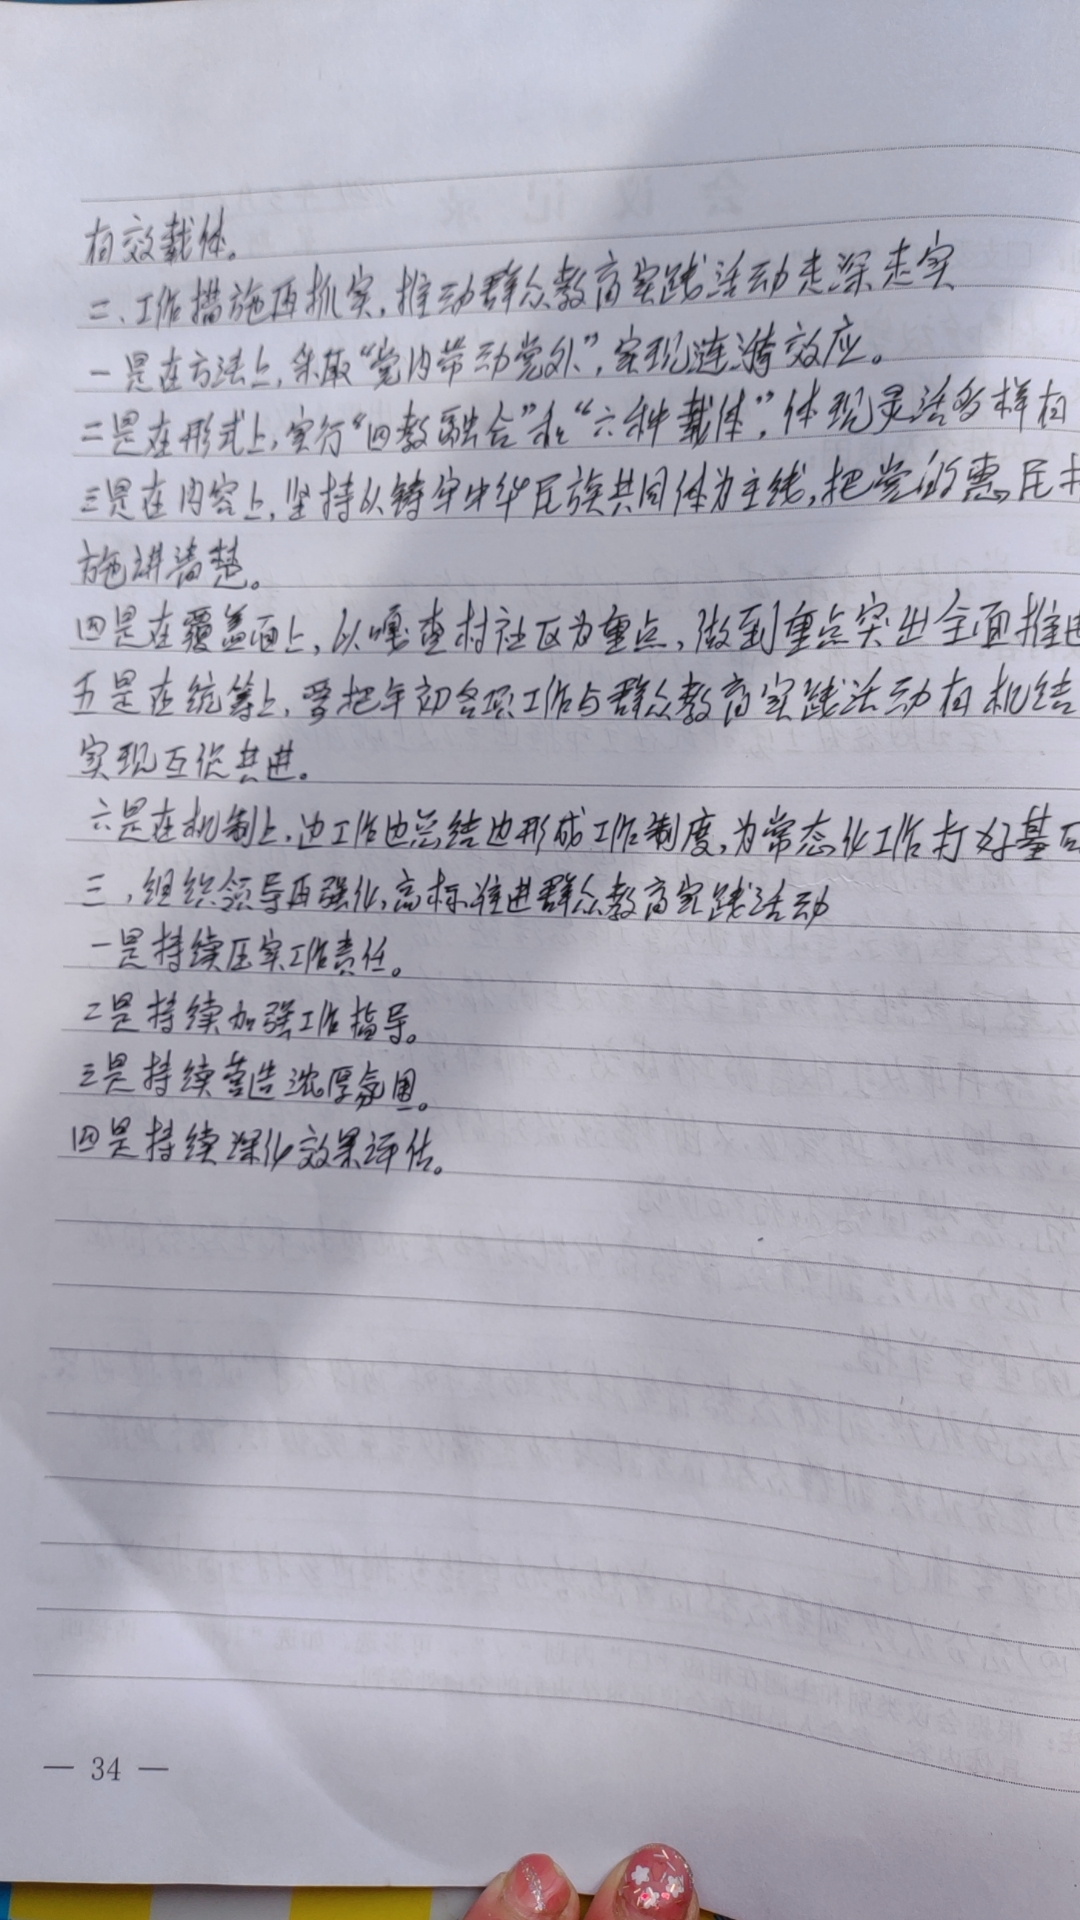 有效载体。
二、工作措施再抓实,推动群众教育实践活动走深走实
一是在方法上,采取“党内带动党外”,实现涟漪效应。
二是在形式上,实行“四教融合”和“六种载体”,体现灵活多样有
三是在内容上,坚持以铸牢中华民族共同体为主线,把党的惠民
施讲清楚。
四是在覆盖面上,以嘎查村社区为重点,做到重点突出全面推进
五是在统筹上,要把年初各项工作与群众教育实践活动有机结
实现互促共进。
六是在机制上,边工作边总结边形成工作制度,为常态化工作打好基
三、组织领导再强化,高标准进群众教育实践活动
一是持续压实工作责任。
二是持续加强工作指导。
三是持续营造浓厚氛围。
四是持续深化效果评估。
— 34 —